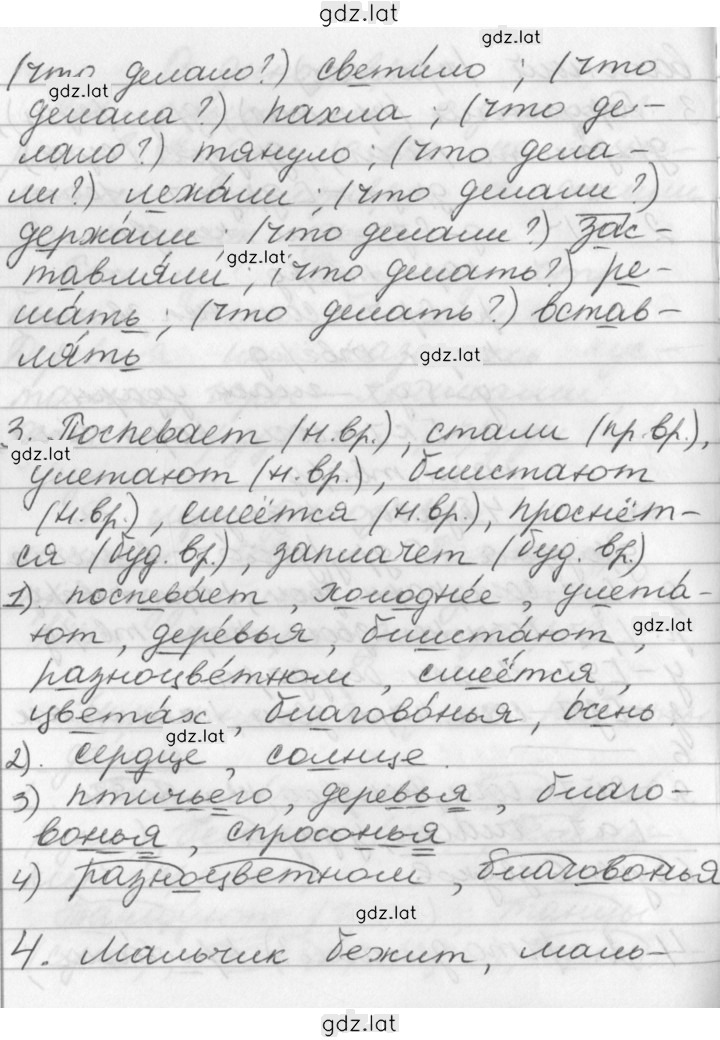 gdz.lat
gdz.lat
(что делало?) светило; (что
gdz.lat
делала?) пахла; (что де-
лало?) тянуло; (что дела-
ли?) лежали; (что делали?)
держали; (что делали?) зас-
gdz.lat
тавляли; (что делать?) ре-
шать; (что делать?) встав-
лять
gdz.lat
3. Поспевает (н.вр.), стали (пр.вр.),
gdz.lat
улетают (н.вр.), блистают
(н.вр.), смеётся (н.вр.), проснёт-
ся (буд.вр.), заплачет (буд.вр)
1). поспевает, холоднее, улета-
ют, деревья, блистают,
gdz.lat
разноцветном, смеётся,
цветах, благовонья, осень
gdz.lat
2). сердце, солнце.
3) птичьего, деревья, благо-
вонья, спросонья
4) разноцветном, благовонья
gdz.lat
4. Мальчик бежит, маль-
gdz.lat